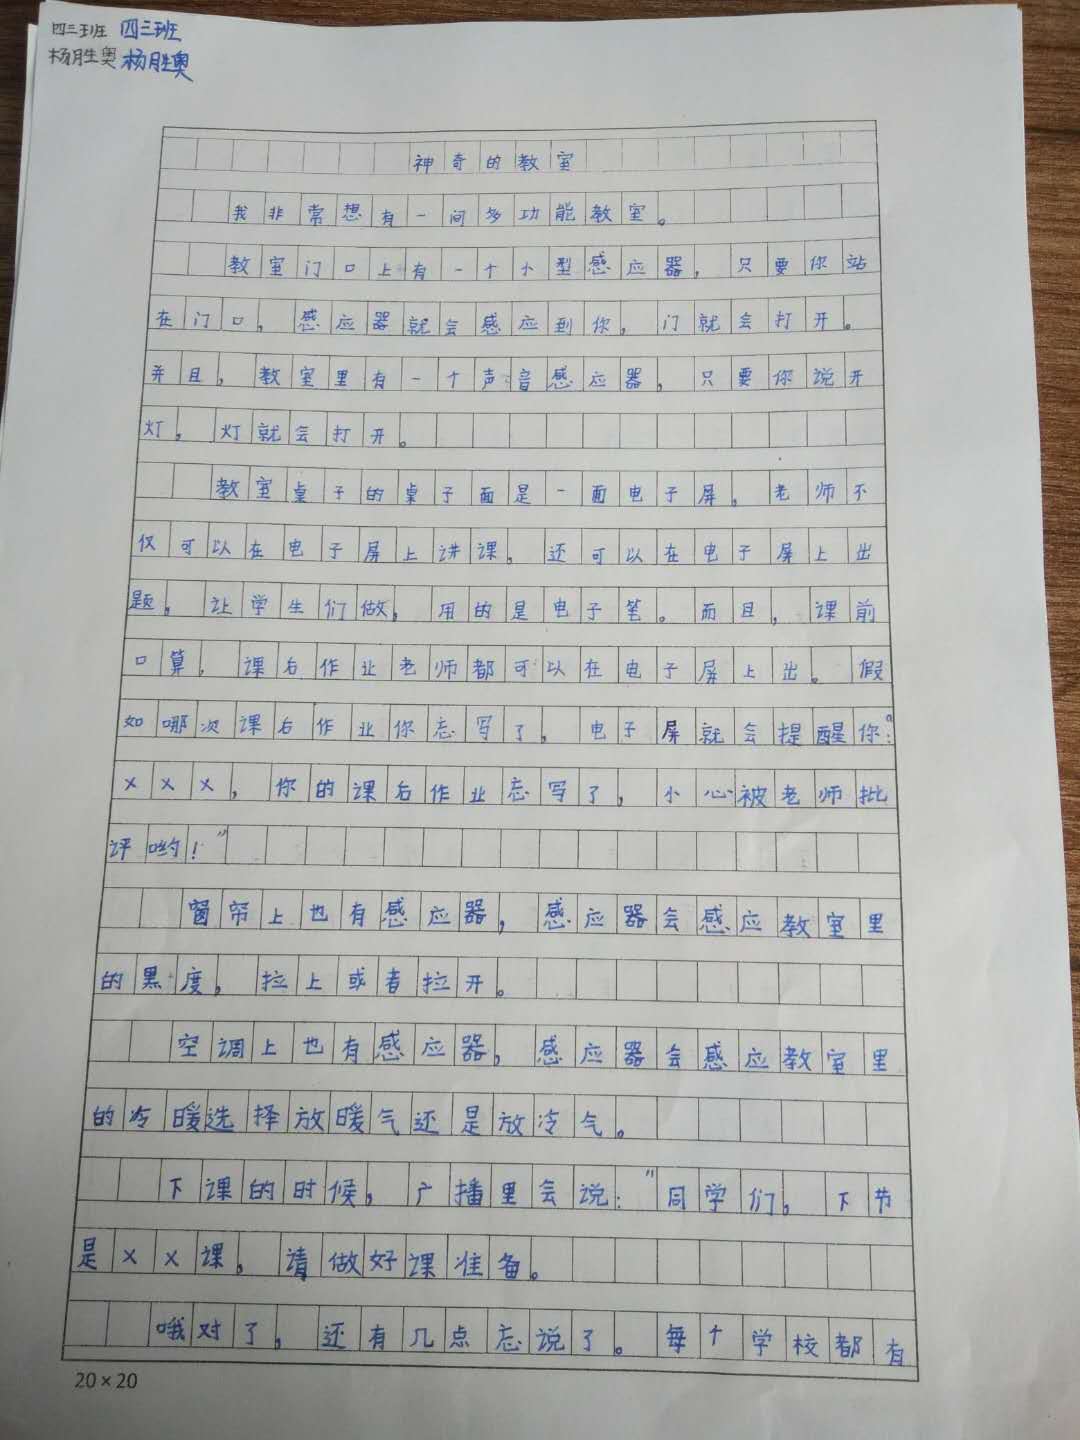 四三班 四三班
杨胜奥 杨胜奥
神奇的教室
我非常想有一间多功能教室。
教室门口上有一个小型感应器，只要你站
在门口，感应器就会感应到你，门就会打开。
并且，教室里有一个声音感应器，只要你说开
灯，灯就会打开。
教室桌子的桌子面是一面电子屏，老师不
仅可以在电子屏上讲课，还可以在电子屏上出
题，让学生们做，用的是电子笔。而且，课前
口算，课后作业老师都可以在电子屏上出。假
如哪次课后作业你忘写了，电子屏就会提醒你：“
×××，你的课后作业忘写了，小心被老师批
评哟！”
窗帘上也有感应器，感应器会感应教室里
的黑度，拉上或者拉开。
空调上也有感应器，感应器会感应教室里
的冷暖选择放暖气还是放冷气。
下课的时候，广播里会说：“同学们，下节
是××课，请做好课准备。
哦对了，还有几点忘说了。每个学校都有
20×20